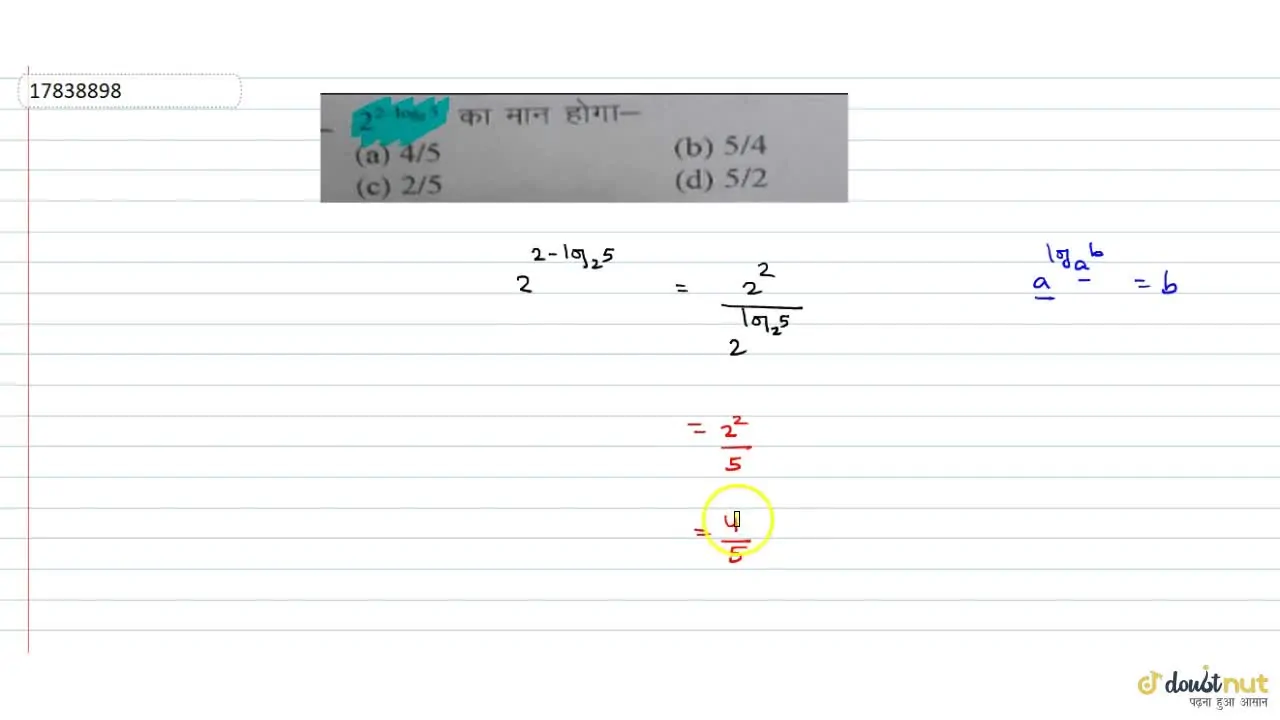 17838898
2^{2-log₂5} का मान होगा–
(a) 4/5 (b) 5/4
(c) 2/5 (d) 5/2
2^{2-log₂5} = 2² / 2^{log₂5} a^{logₐb} = b
= 2²/5
= 4/5
doubtnut
पढ़ना हुआ आसान